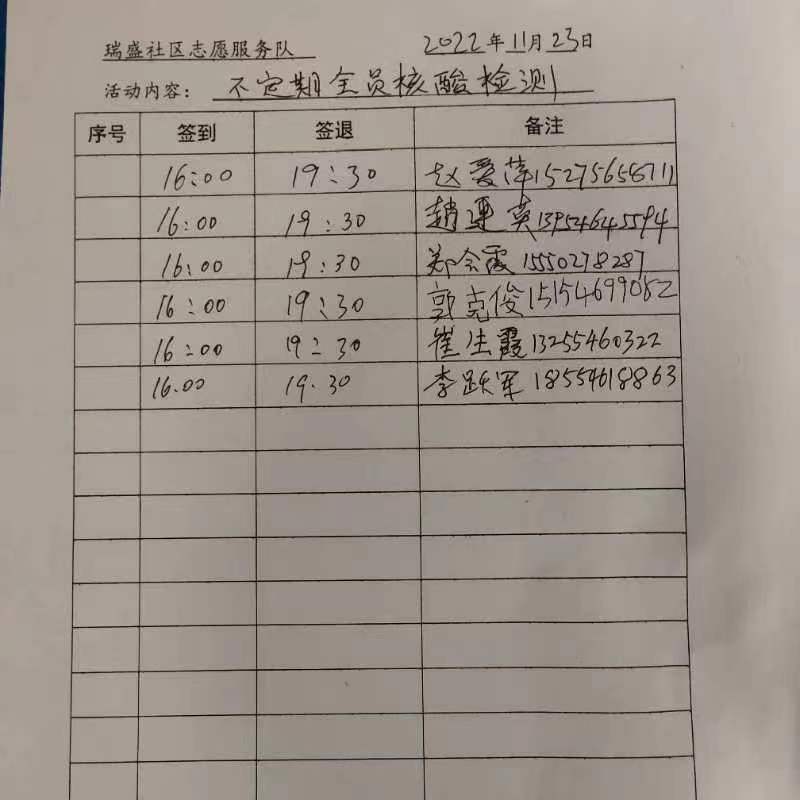 瑞盛社区志愿服务队 2022年11月23日
活动内容：不定期全员核酸检测
序号 签到 签退 备注
16:00 19:30 赵爱萍15275658711
16:00 19:30 趙連英13954645594
16:00 19:30 郑会霞15550278287
16:00 19:30 郭克俊15154699082
16:00 19:30 崔生霞13255460322
16.00 19.30 李跃军18554618863